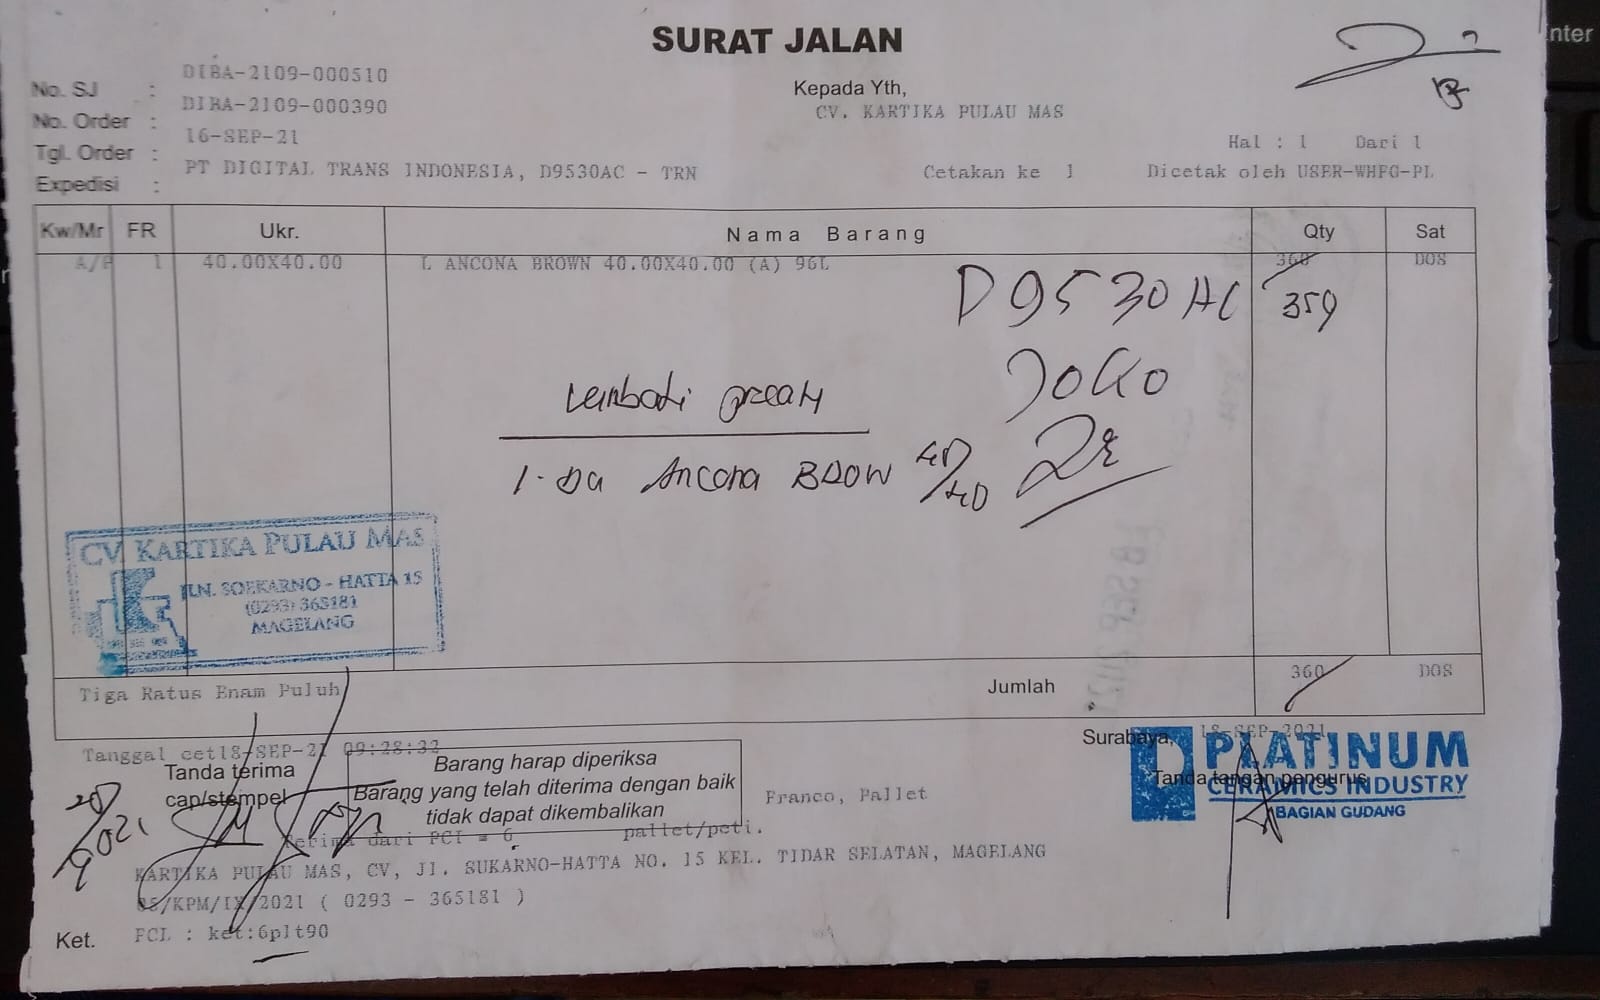 SURAT JALAN
No. SJ : DIBA-2109-000510
No. Order : DIBA-2109-000390
Tgl. Order : 16-SEP-21
Expedisi : PT DIGITAL TRANS INDONESIA, D9530AC - TRN
Kepada Yth,
CV. KARTIKA PULAU MAS
Hal : 1 Dari 1
Cetakan ke 1 Dicetak oleh USER-WHFG-PL
Kw/Mr FR Ukr. Nama Barang Qty Sat
1 40.00X40.00 L ANCONA BROWN 40.00X40.00 (A) 96L 360 DOS
D9530AC 359
JOKO
1. Ancona BROW 40/40
CV. KARTIKA PULAU MAS
JLN. SOEKARNO - HATTA 15
(0293) 365181
MAGELANG
Tiga Ratus Enam Puluh Jumlah 360 DOS
Tanggal cet18-SEP-21 09:28:32
Surabaya, 18-SEP-2021
Tanda terima
cap/stempel
Barang harap diperiksa
Barang yang telah diterima dengan baik
tidak dapat dikembalikan
Franco, Pallet
PLATINUM
CERAMICS INDUSTRY
BAGIAN GUDANG
Tanda tangan pengurus
20/9 021
Terima dari PCI = 6 pallet/peti.
KARTIKA PULAU MAS, CV, Jl. SUKARNO-HATTA NO. 15 KEL. TIDAR SELATAN, MAGELANG
/KPM/IX/2021 ( 0293 - 365181 )
Ket. FCL : ket:6plt90